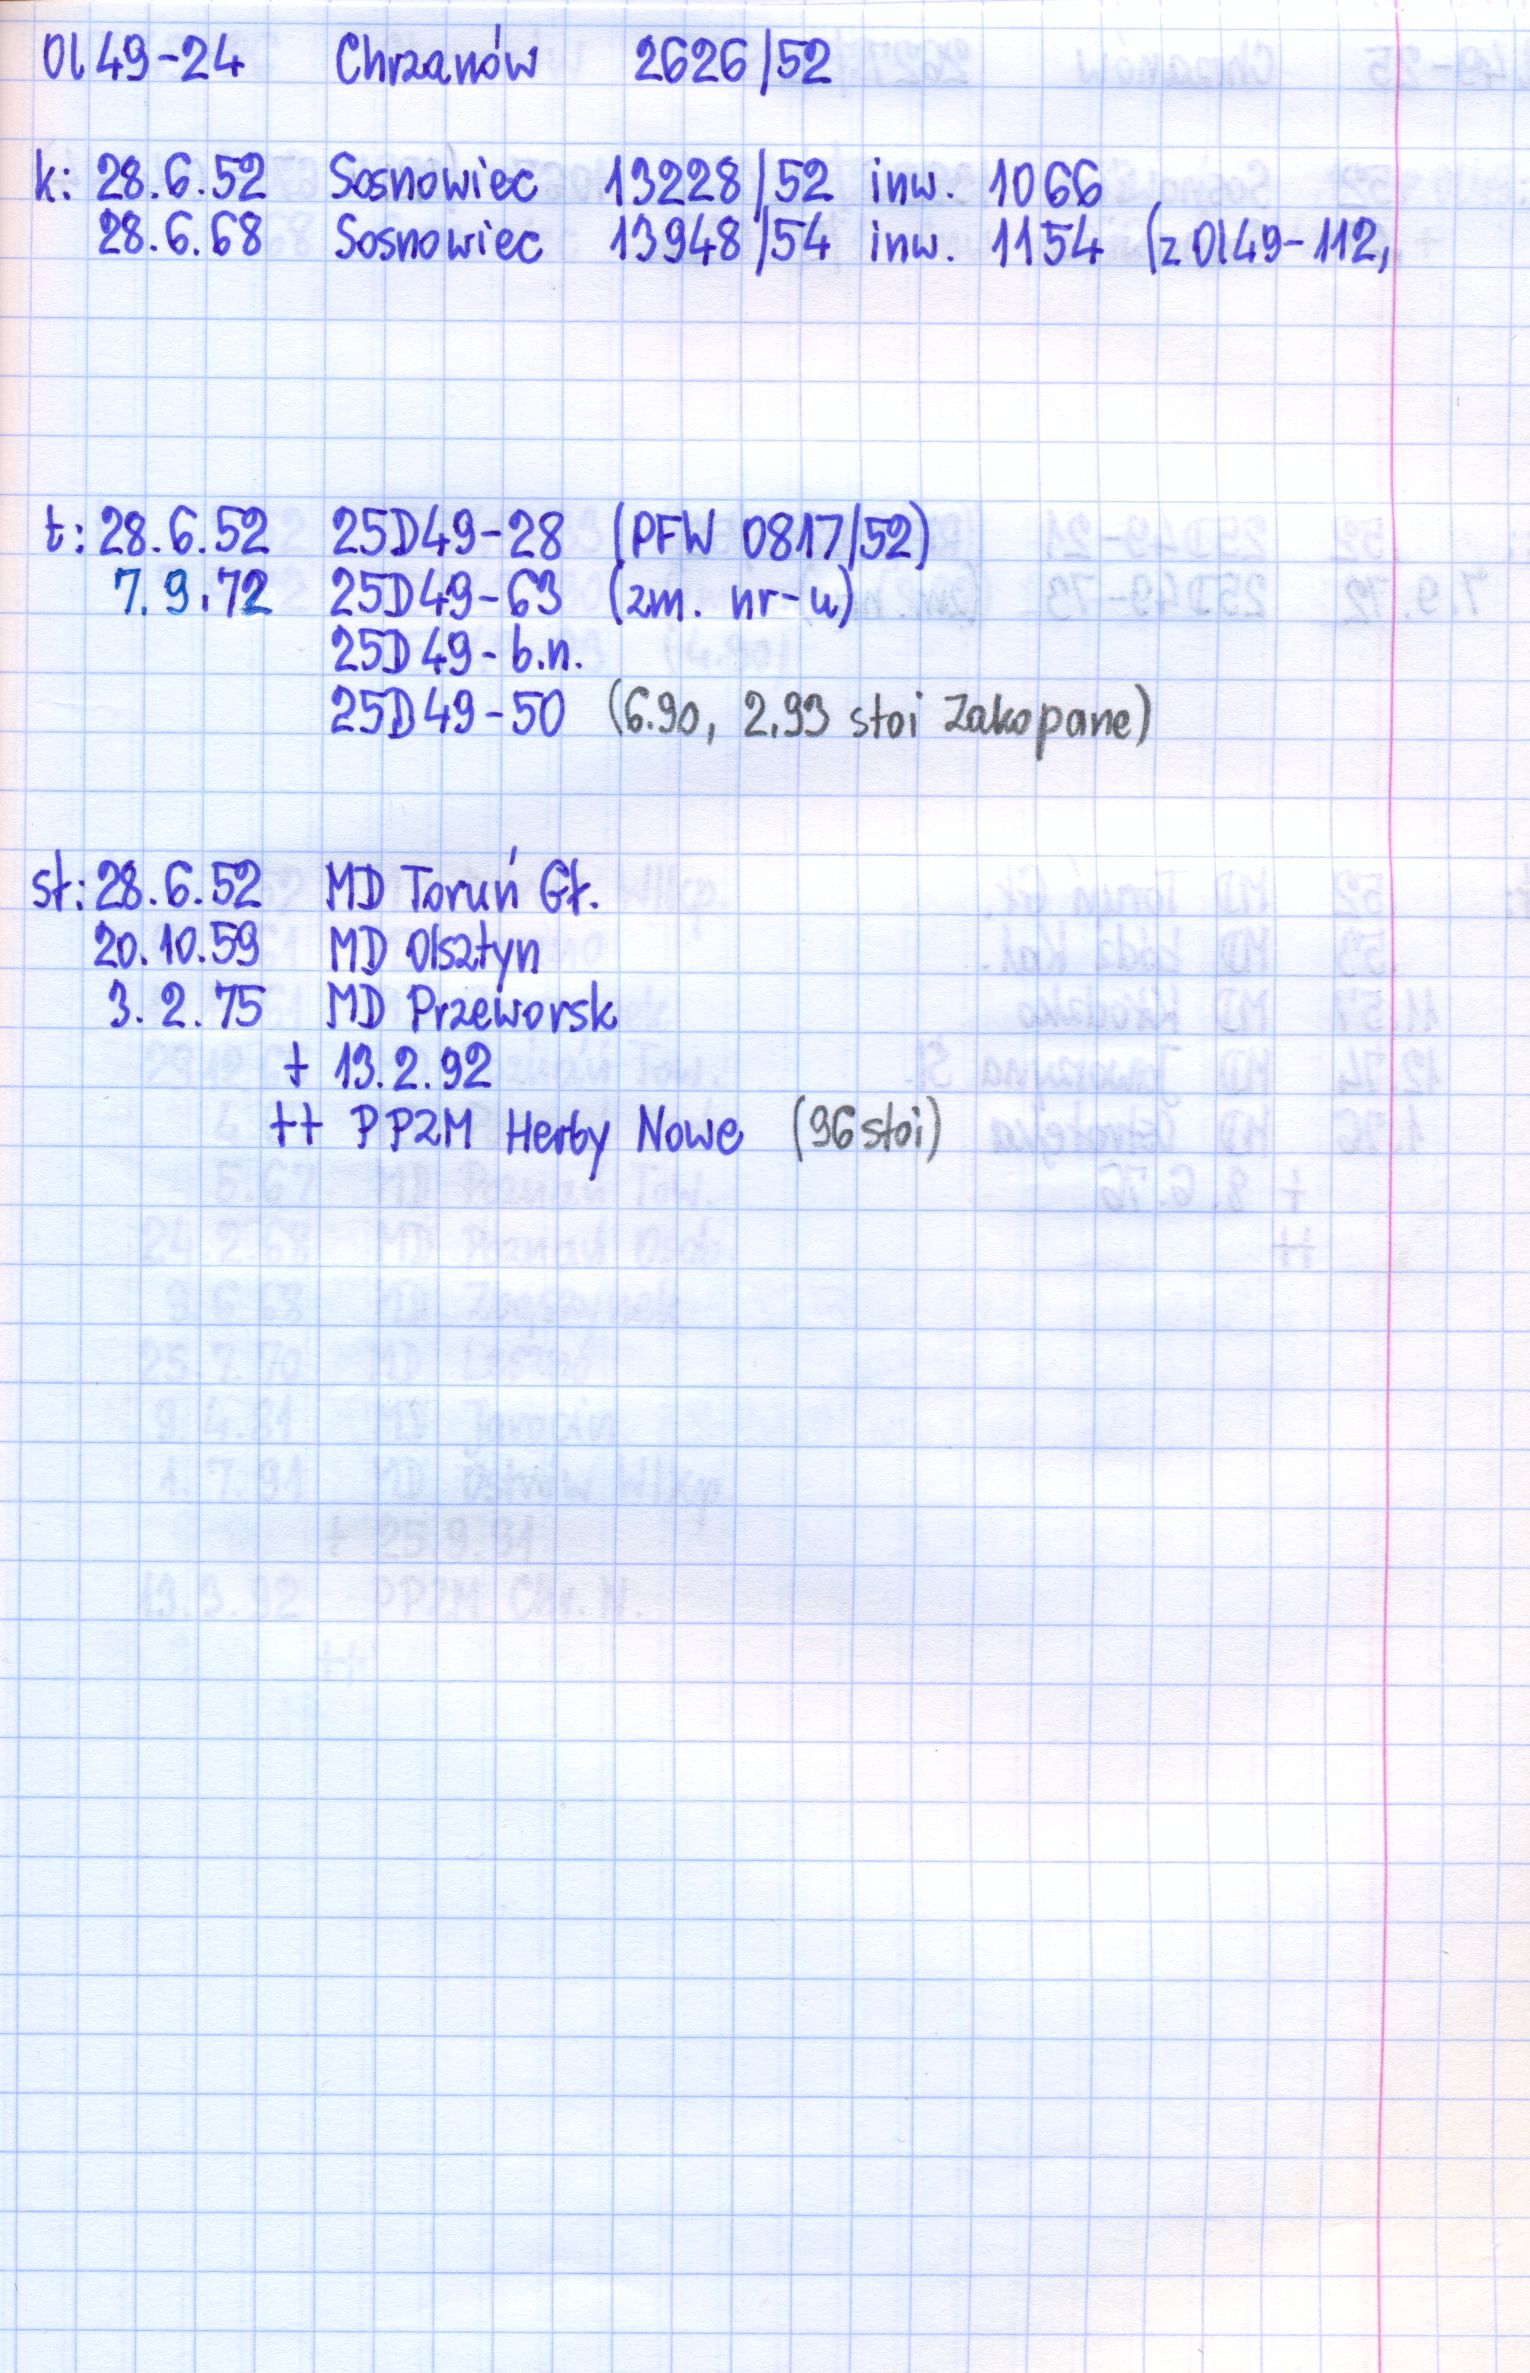 Ol49-24 Chrzanów 2626/52
k: 28.6.52 Sosnowiec 13228/52 inw. 1066
28.6.68 Sosnowiec 13948/54 inw. 1154 (z Ol49-112,
t: 28.6.52 25D49-28 (PFW 0817/52)
7.9.72 25D49-63 (zm. nr-u)
25D49-b.n.
25D49-50 (6.90, 2.93 stoi Zakopane)
sł: 28.6.52 MD Toruń Gł.
20.10.59 MD Olsztyn
3.2.75 MD Przeworsk
+ 13.2.92
++ PPZM Herby Nowe (96 stoi)